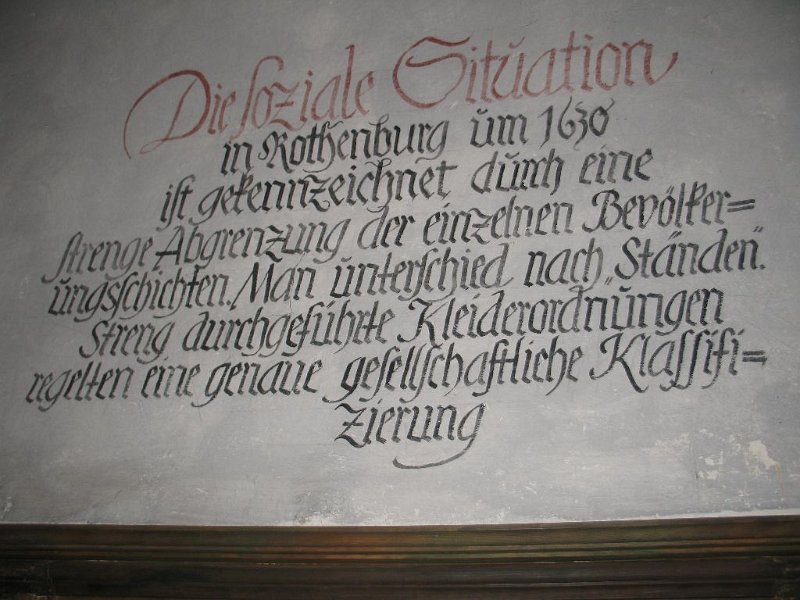 Die soziale Situation
in Rothenburg um 1630
ist gekennzeichnet durch eine
strenge Abgrenzung der einzelnen Bevölker=
ungsschichten. Man unterschied nach „Ständen".
Streng durchgeführte Kleiderordnungen
regelten eine genaue gesellschaftliche Klassifi=
zierung